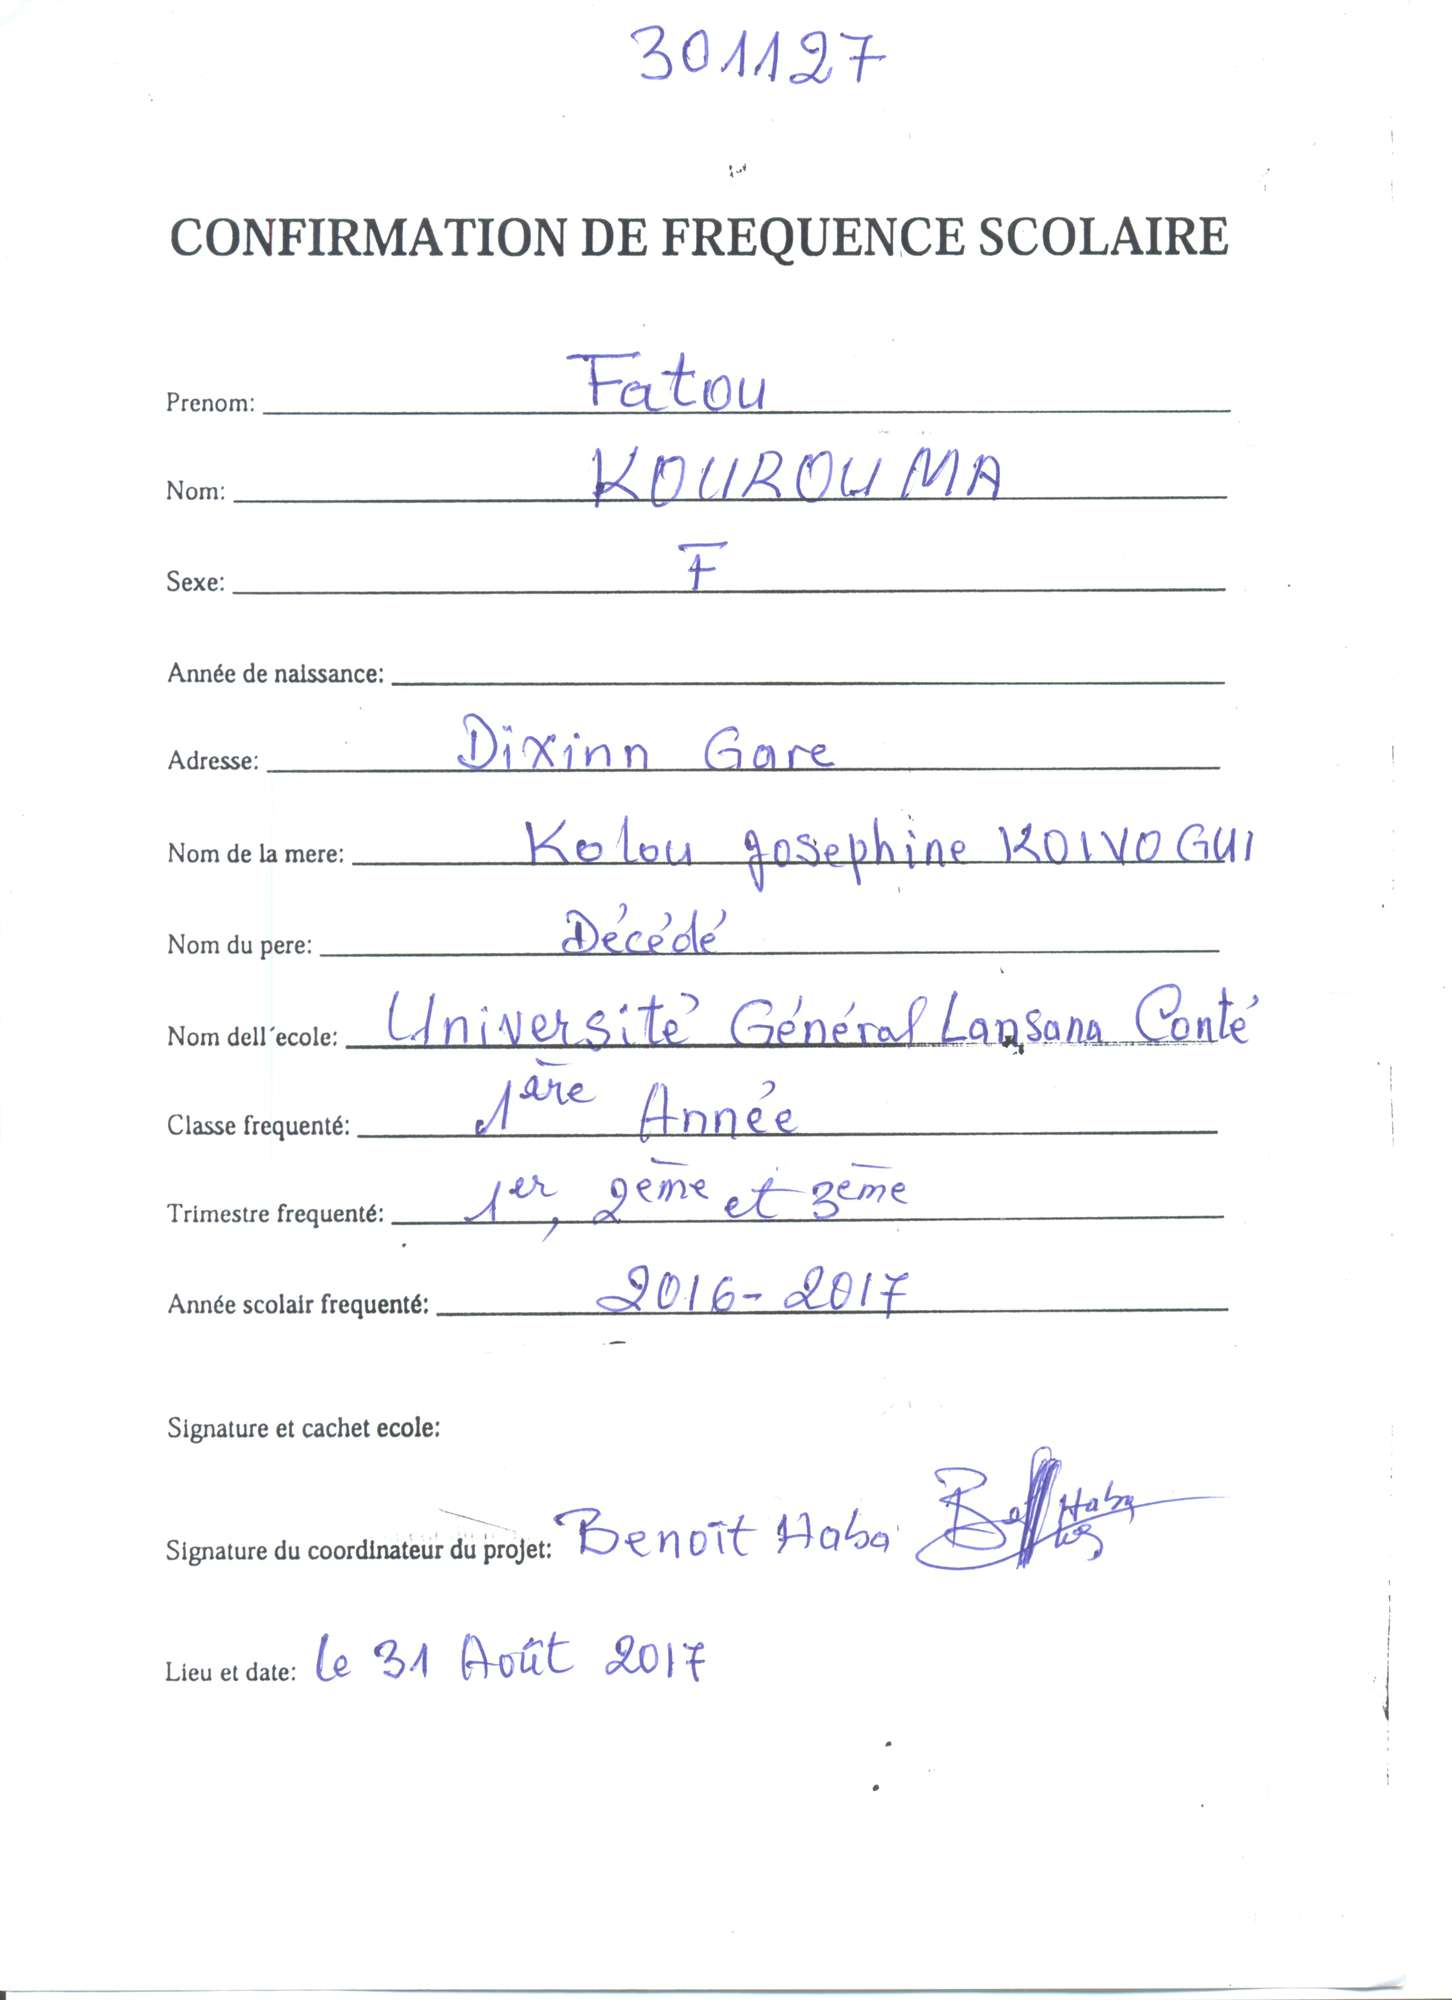 301127
CONFIRMATION DE FREQUENCE SCOLAIRE
Prenom: Fatou
Nom: KOUROUMA
Sexe: F
Année de naissance:
Adresse: Dixinn Gare
Nom de la mere: Kolou Josephine KOIVOGUI
Nom du pere: Décédé
Nom dell´ecole: Université Général Lansana Conté
Classe frequenté: 1ère Année
Trimestre frequenté: 1er, 2ème et 3ème
Année scolair frequenté: 2016-2017
Signature et cachet ecole:
Signature du coordinateur du projet: Benoît Haba
Lieu et date: le 31 Août 2017